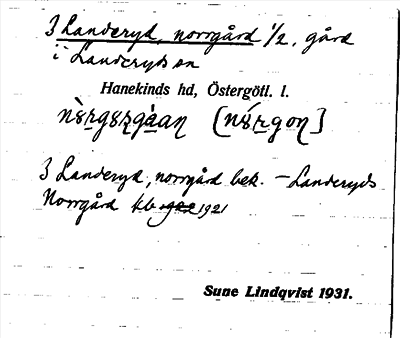 3 Landeryd, norrgård 1/2, gård
i Landeryds sn
Hanekinds hd, Östergötl. l.
3 Landeryd, norrgård bek. – Landeryds
Norrgård 1921
Sune Lindqvist 1931.